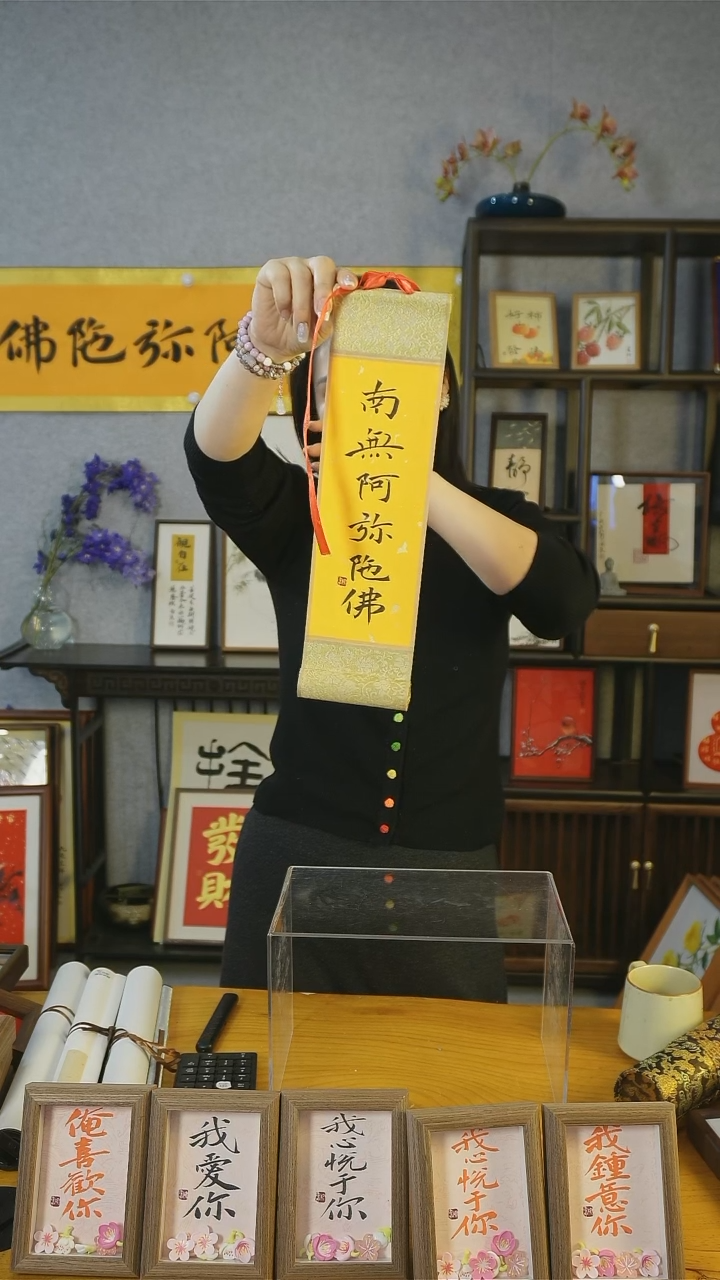 佛陀弥阿
南無阿弥陀佛
静
觀自在
拴
發財
俺喜歡你
我愛你
我心悦于你
我心悦于你
我鍾意你